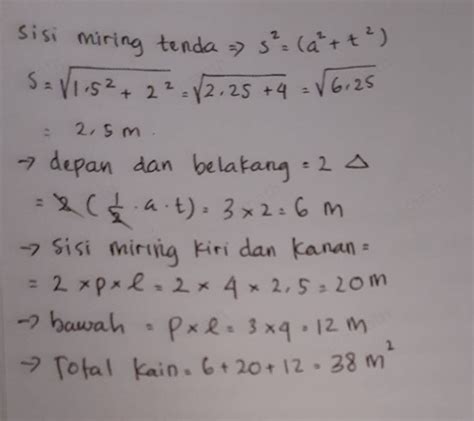 Sisi miring tenda => s² = (a² + t²)
S = √1.5² + 2² = √2.25 + 4 = √6.25
= 2,5 m.
→ depan dan belakang = 2 △
= 2 (1/2 . a . t) = 3 × 2 = 6 m
→ Sisi miring kiri dan kanan =
= 2 × p × l = 2 × 4 × 2,5 = 20 m
→ bawah = p × l = 3 × 4 = 12 m
→ Total kain = 6 + 20 + 12 = 38 m²